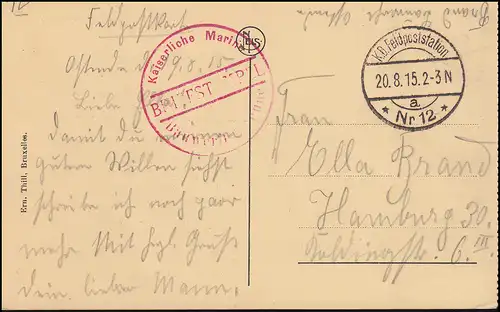 Feldpostkarte
Ostende 9.8.15
Liebe
damit du
guten Willen siehst
schreibe ich noch paar
mehr Mit hzl. Gruß
dein lieber Mann.
Kaiserliche Marine
BRIEFSTEMPEL
K.D. Feldpoststation
20.8.15.2-3N
a.
* Nr 12 *
Frau
Ella Brand
Hamburg 30.
6. III.
Ern. Thill, Bruxelles.